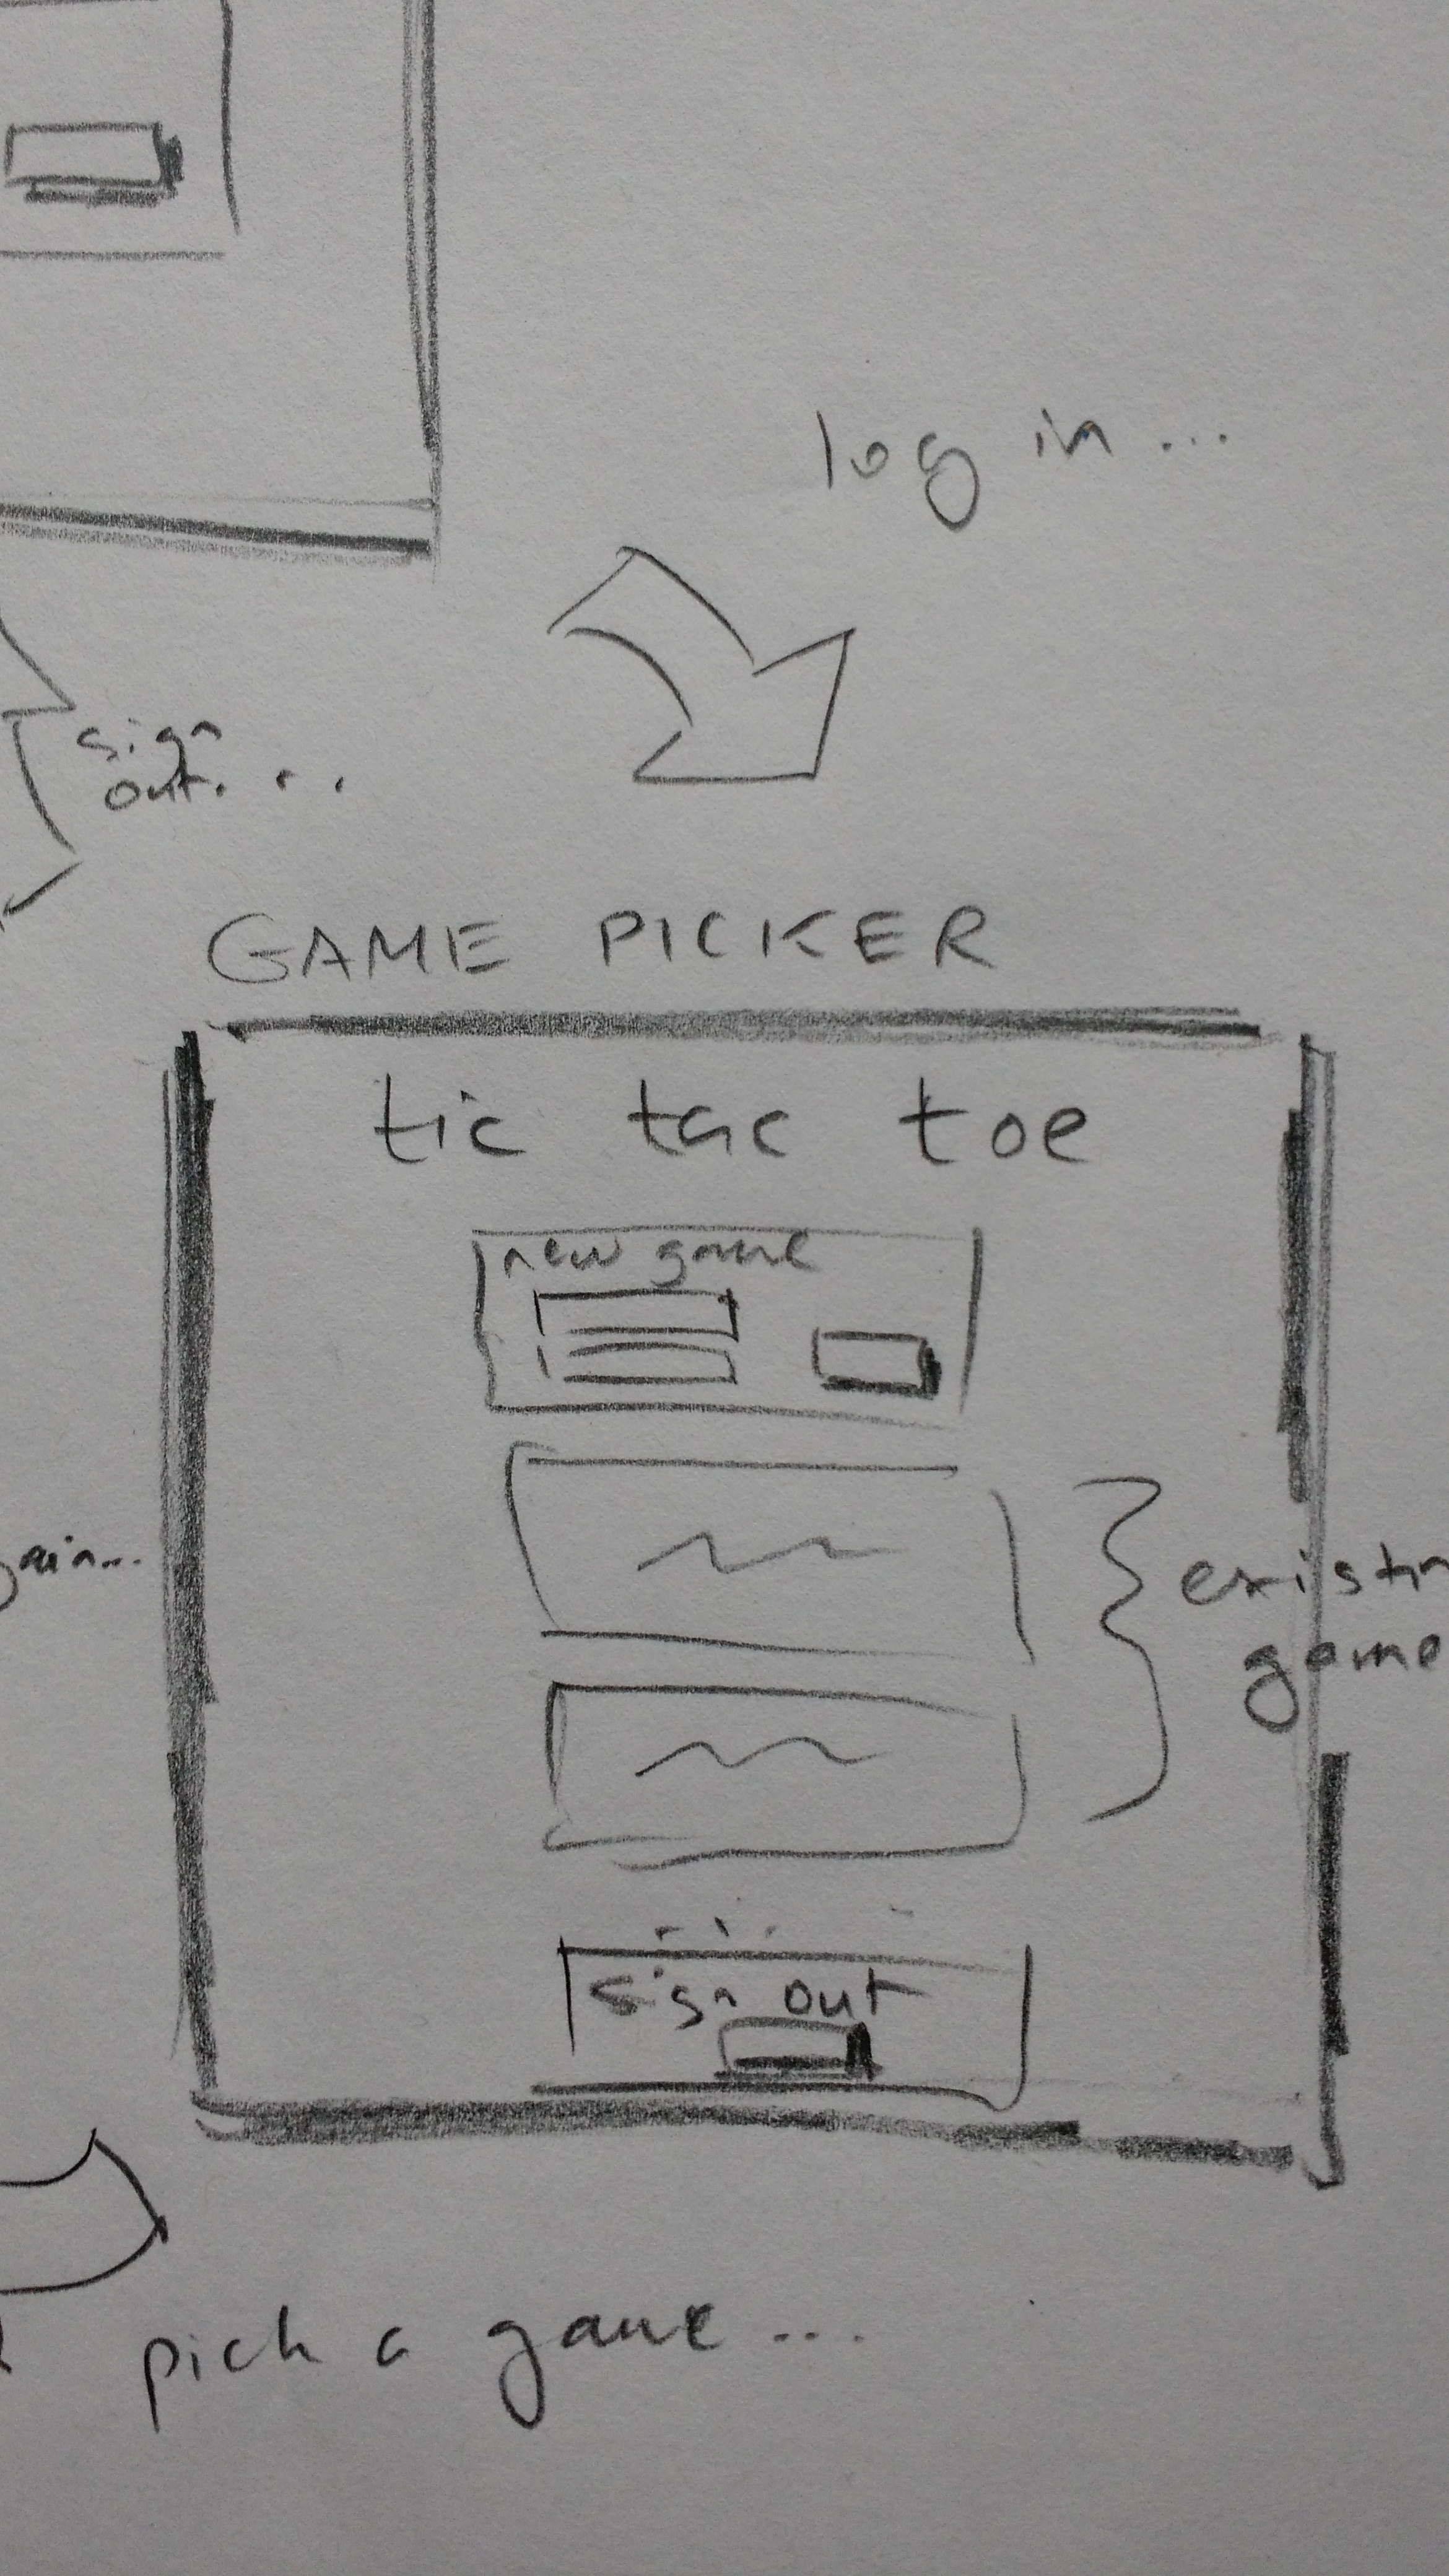 log in...
sign
out...
GAME PICKER
tic tac toe
new game
existin
game
sign out
pick a game...